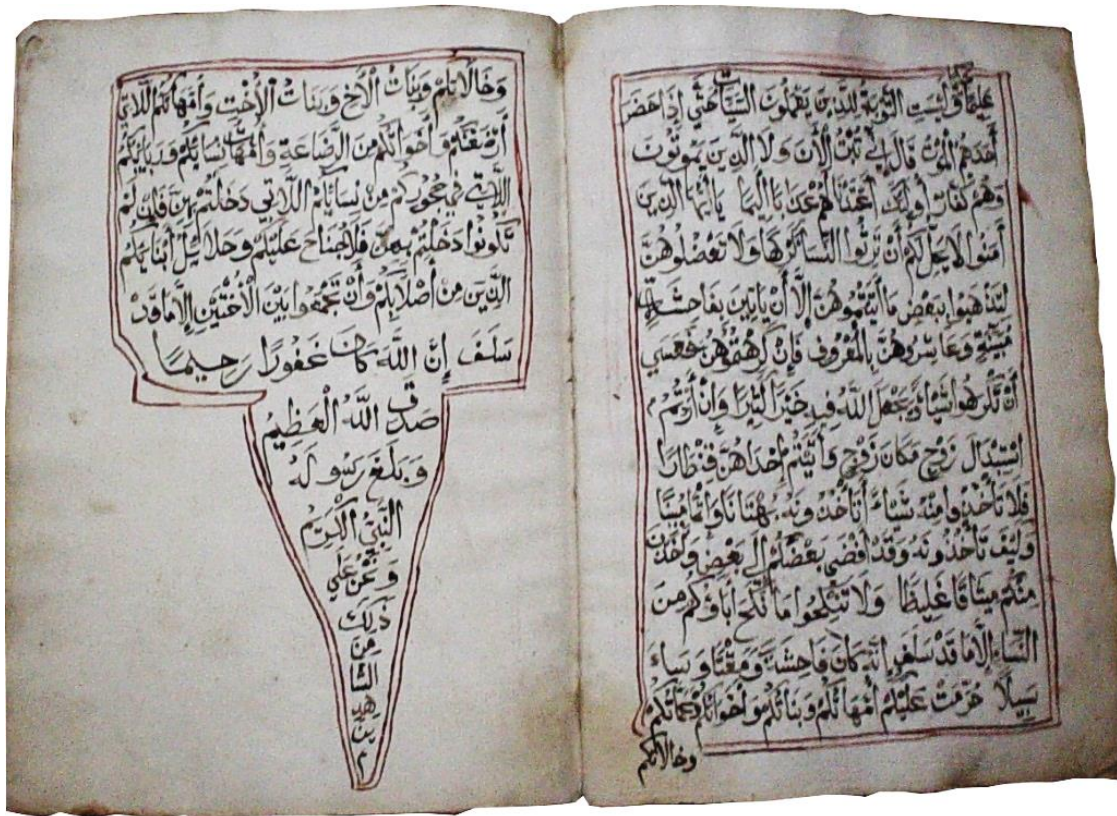 عليما حكيما وليست التوبة للذين يعملون السيات حتي إذا حضر
أحدهم الموت قال إني تبت الأن ولا الذين يموتون
وهم كفار أوليك أعتدنا لهم عذابا اليما يا أيها الذين
أمنوا لا يحل لكم أن ترثوا النساء كرها ولا تعضلوهن
لتذهبوا ببعض ما أتيتموهن إلا أن ياتين بفاحشة
مبينة وعاشروهن بالمعروف فإن كرهتموهن فعسي
أن تكرهوا شياء ويجعل الله فيه خيرا كثيرا وإن أردتم
استبدال زوج مكان زوج وأتيتم إحداهن قنطارا
فلا تأخذوا منه شياء أتأخذونه بهتانا واثما مبينا
وكيف تأخذونه وقد أفضي بعضكم إلي بعض وأخذن
منكم ميثاقا غليظا ولا تنكحوا ما نكح اباؤكم من
النساء إلا ما قد سلف إنه كان فاحشة ومقتا وساء
سبيلا حرمت عليكم أمهاتكم وبناتكم وأخواتكم وعماتكم
وخالاتكم
وخالاتكم وبنات الأخ وبنات الأخت وأمهاتكم اللاتي
أرضعنكم وأخواتكم من الرضاعة وأمهات نسايكم وربايبكم
اللاتي في حجوركم من نسايكم اللاتي دخلتم بهن فإن لم
تكونوا دخلتم بهن فلا جناح عليكم وحلايل أبنايكم
الذين من أصلابكم وأن تجمعوا بين الأختين إلا ما قد
سلف إن الله كان غفورا رحيما
صدق الله العظيم
وبلغ رسوله
النبي الكريم
ونحن علي
ذلك
من
الشا
هد
ين
م